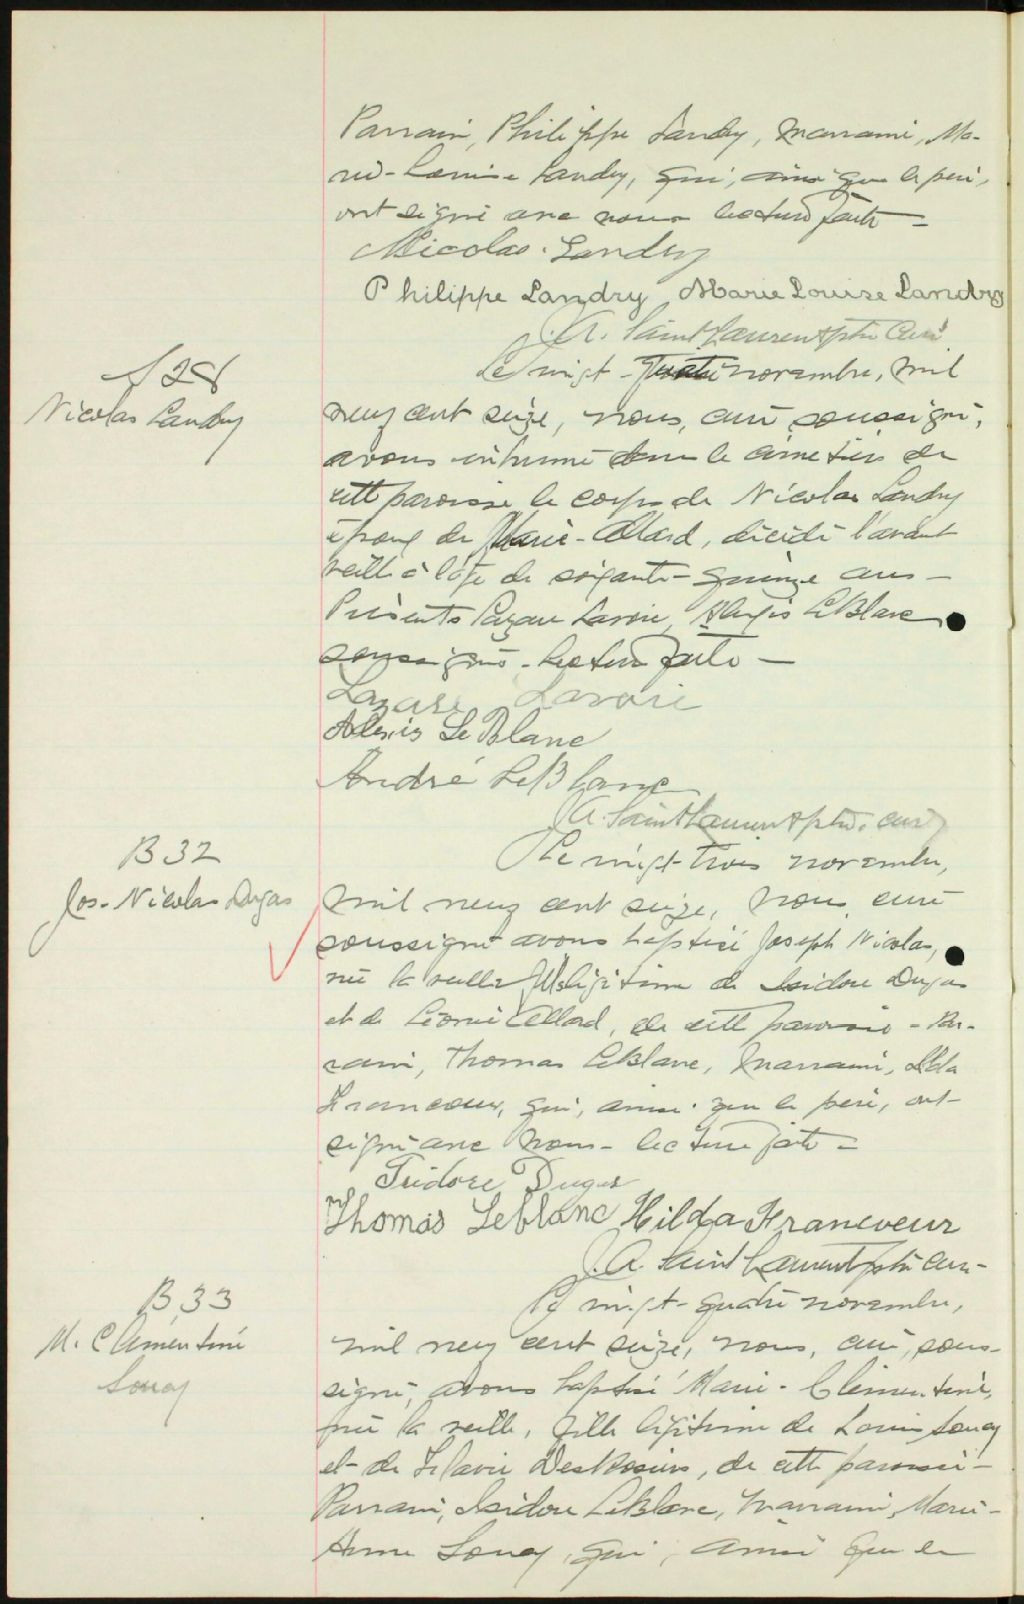 Parrain, Philippe Landry, marraine, Ma-
rie-Louise Landry, qui, ainsi que le père,
ont signé avec nous lecture faite =
Nicolas Landry
Philippe Landry, Marie Louise Landry
A. Saint Laurent ptre curé
S 28
Nicolas Landry
Le vingt-quatre novembre, mil
neuf cent seize, nous, curé soussigné,
avons inhumé dans le cimetière de
cette paroisse le corps de Nicolas Landry
époux de Marie Allard, décédé l'avant
veille à l'âge de soixante-quinze ans -
Présents Lazare Lavoie, Alexis LeBlanc
soussignés - lecture faite -
Lazare Lavoie
Alexis Le Blanc
André LeBlanc
A. Saint Laurent ptre. curé
B 32
Jos. Nicolas Dugas
Le vingt-trois novembre,
mil neuf cent seize, nous, curé
soussigné avons baptisé Joseph Nicolas,
né la veille fils légitime de Isidore Dugas
et de Léonie Allard, de cette paroisse - Par-
rain, Thomas LeBlanc, marraine, Ilda
Francoeur, qui, ainsi que le père, ont
signé avec nous - lecture faite =
Isidore Dugas
Thomas Leblanc Hilda Francveur
A. Saint Laurent ptre curé-
B 33
M. Clémentine
Soucy
Le vingt-quatre novembre,
mil neuf cent seize, nous, curé, sous-
signé, avons baptisé Marie-Clémentine,
née la veille, fille légitime de Louis Soucy
et de Flavie DesRosiers, de cette paroisse -
Parrain, Isidore LeBlanc, marraine, Marie-
Anne Soucy, qui, ainsi que le